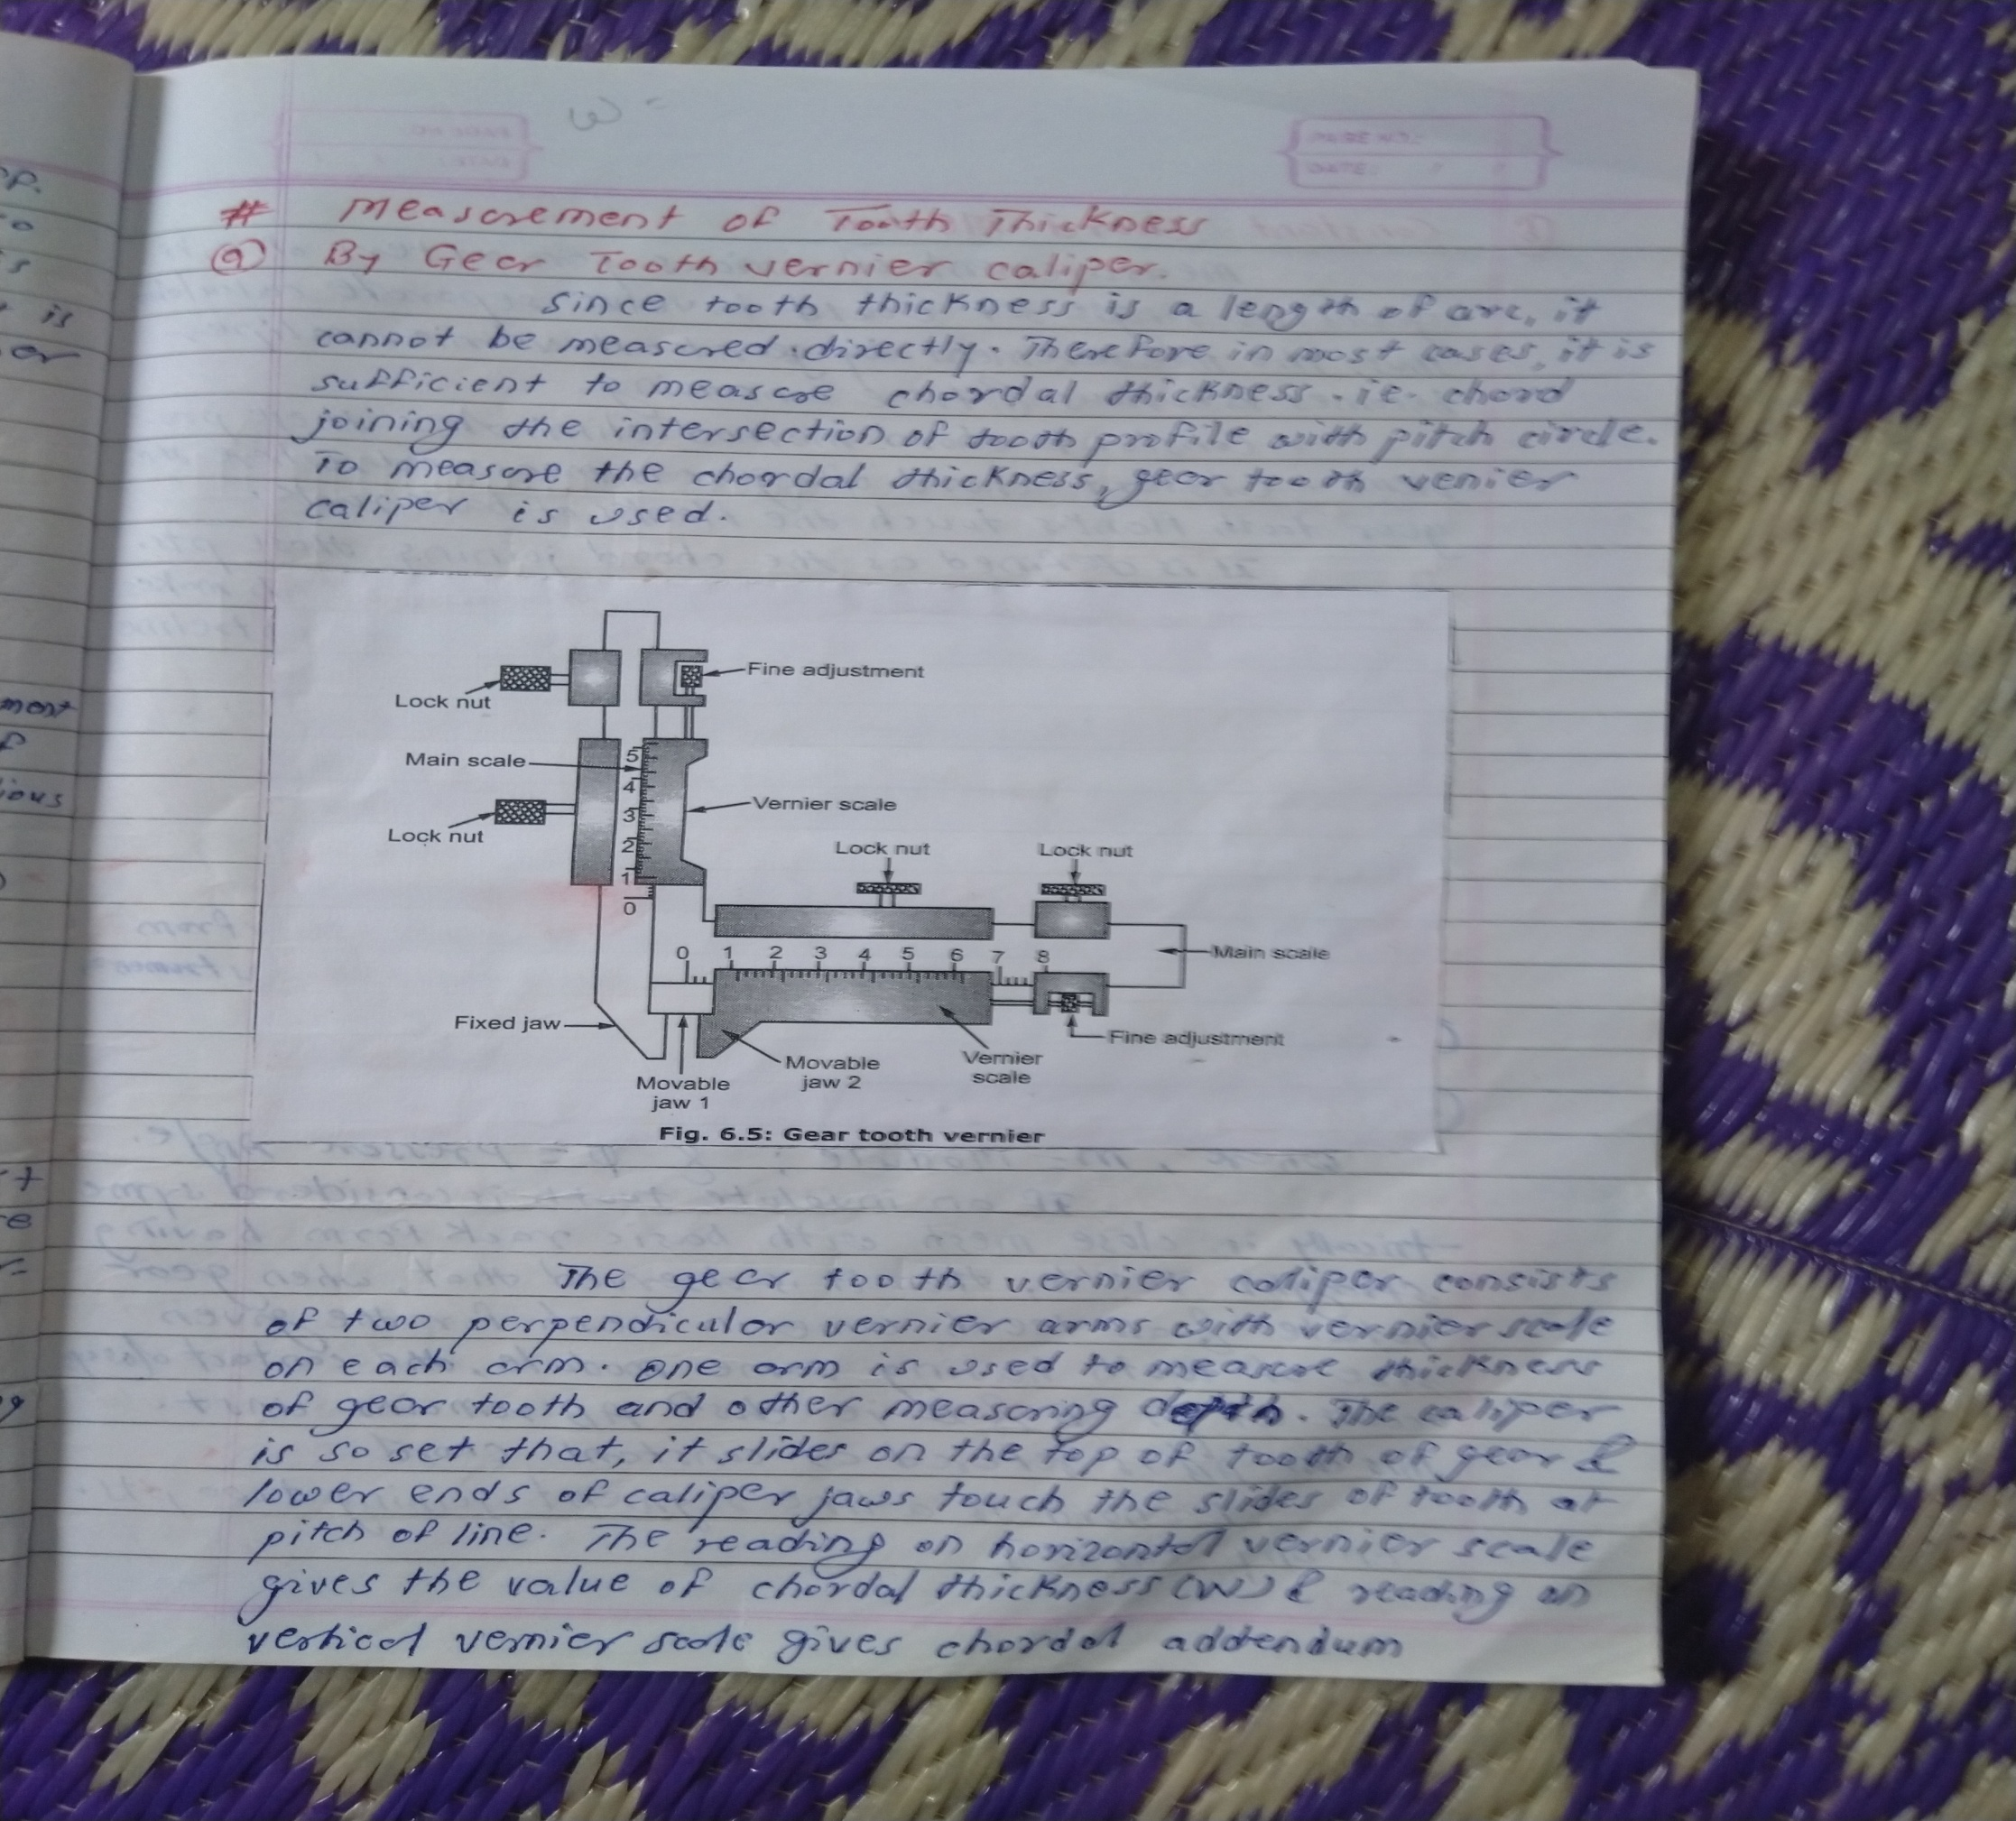 PAGE NO.:
DATE:
# Measurement of Tooth Thickness
a By Gear Tooth vernier caliper.
Since tooth thickness is a length of arc, it
cannot be measured directly. Therefore in most cases, it is
sufficient to measure chordal thickness. ie. chord
joining the intersection of tooth profile with pitch circle.
To measure the chordal thickness, gear tooth venier
caliper is used.
Fine adjustment
Lock nut
Main scale
5
4
Vernier scale
3
Lock nut
2
1
0
Lock nut Lock nut
0 1 2 3 4 5 6 7 8
Main scale
Fixed jaw
Fine adjustment
Movable
jaw 2
Vernier
scale
Movable
jaw 1
Fig. 6.5: Gear tooth vernier
The gear tooth vernier caliper consists
of two perpendicular vernier arms with vernier scale
on each arm. one arm is used to measure thickness
of gear tooth and other measuring depth. The caliper
is so set that, it slides on the top of tooth of gear &
lower ends of caliper jaws touch the slides of tooth at
pitch of line. The reading on horizontal vernier scale
gives the value of chordal thickness (W) & reading on
vertical vernier scale gives chordal addendum